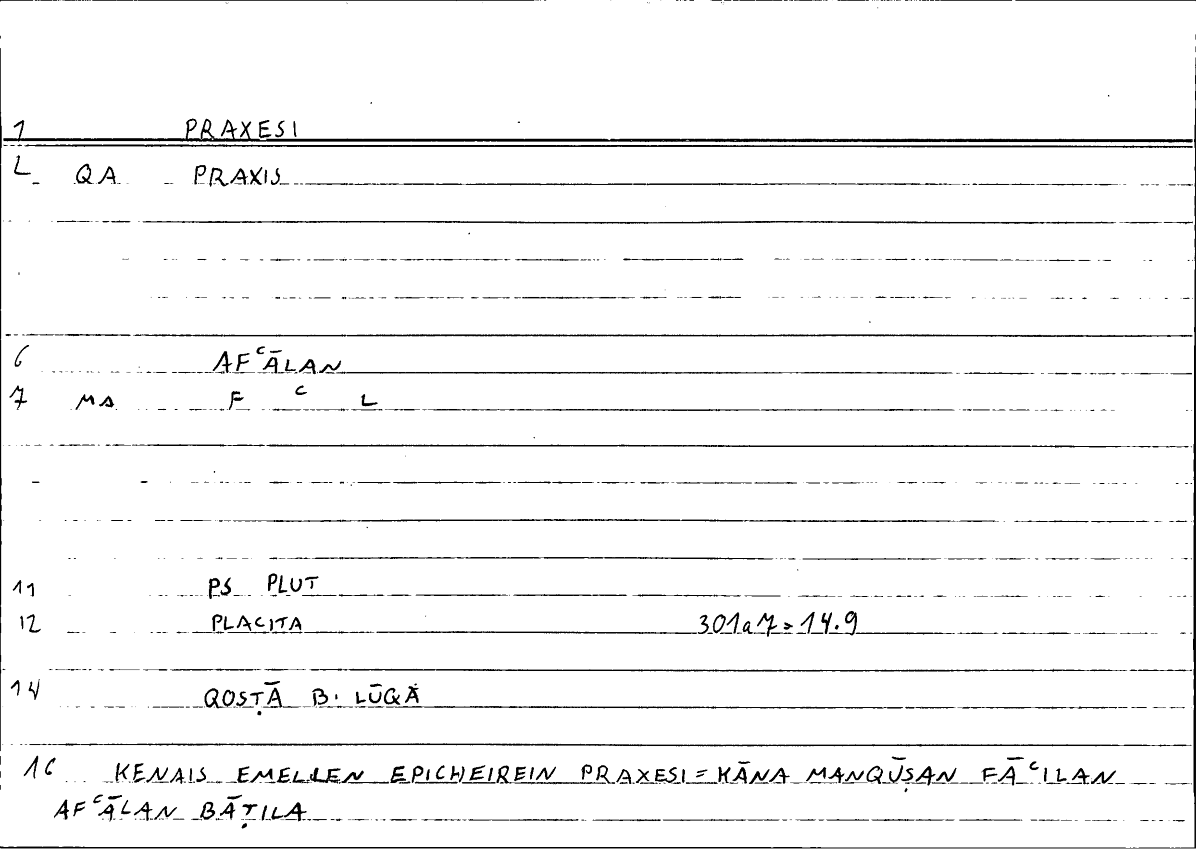 1 PRAXESI
2 QA PRAXIS
6 AFᶜĀLAN
7 MA F ᶜ L
11 PS PLUT
12 PLACITA 301a7=14.9
14 QOSṬĀ B. LŪQĀ
16 KENAIS EMELLEN EPICHEIREIN PRAXESI = KĀNA MANQŪṢAN FĀᶜILAN
AFᶜĀLAN BĀṬILA